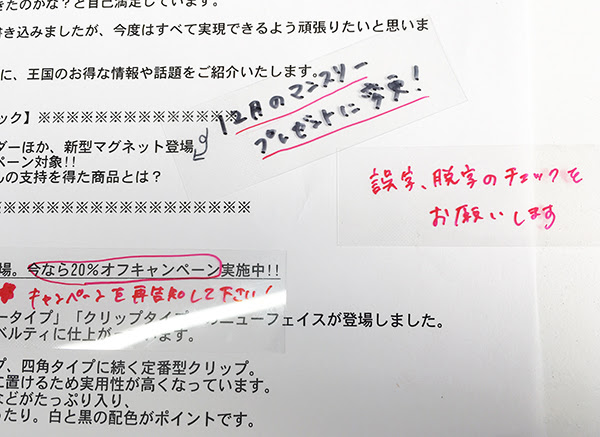 きたのかな？と自己満足しています。
書き込みましたが、今度はすべて実現できるよう頑張りたいと思いま
に、王国のお得な情報や話題をご紹介いたします。
12月のマンスリー
プレゼントに変更！
ック】※※※※※※※※※※※※※
ダーほか、新型マグネット登場
ペーン対象!!
んの支持を得た商品とは？
誤字、脱字のチェックを
お願いします
※※※※※※※※※※※※※※※※※※※
場。今なら20%オフキャンペーン実施中!!
キャンペーンを再告知して下さい！
ータイプ」「クリップタイプ」のニューフェイスが登場しました。
ベルティに仕上がっています。
プ、四角タイプに続く定番型クリップ。
に置けるため実用性が高くなっています。
などがたっぷり入り、
ったり。白と黒の配色がポイントです。